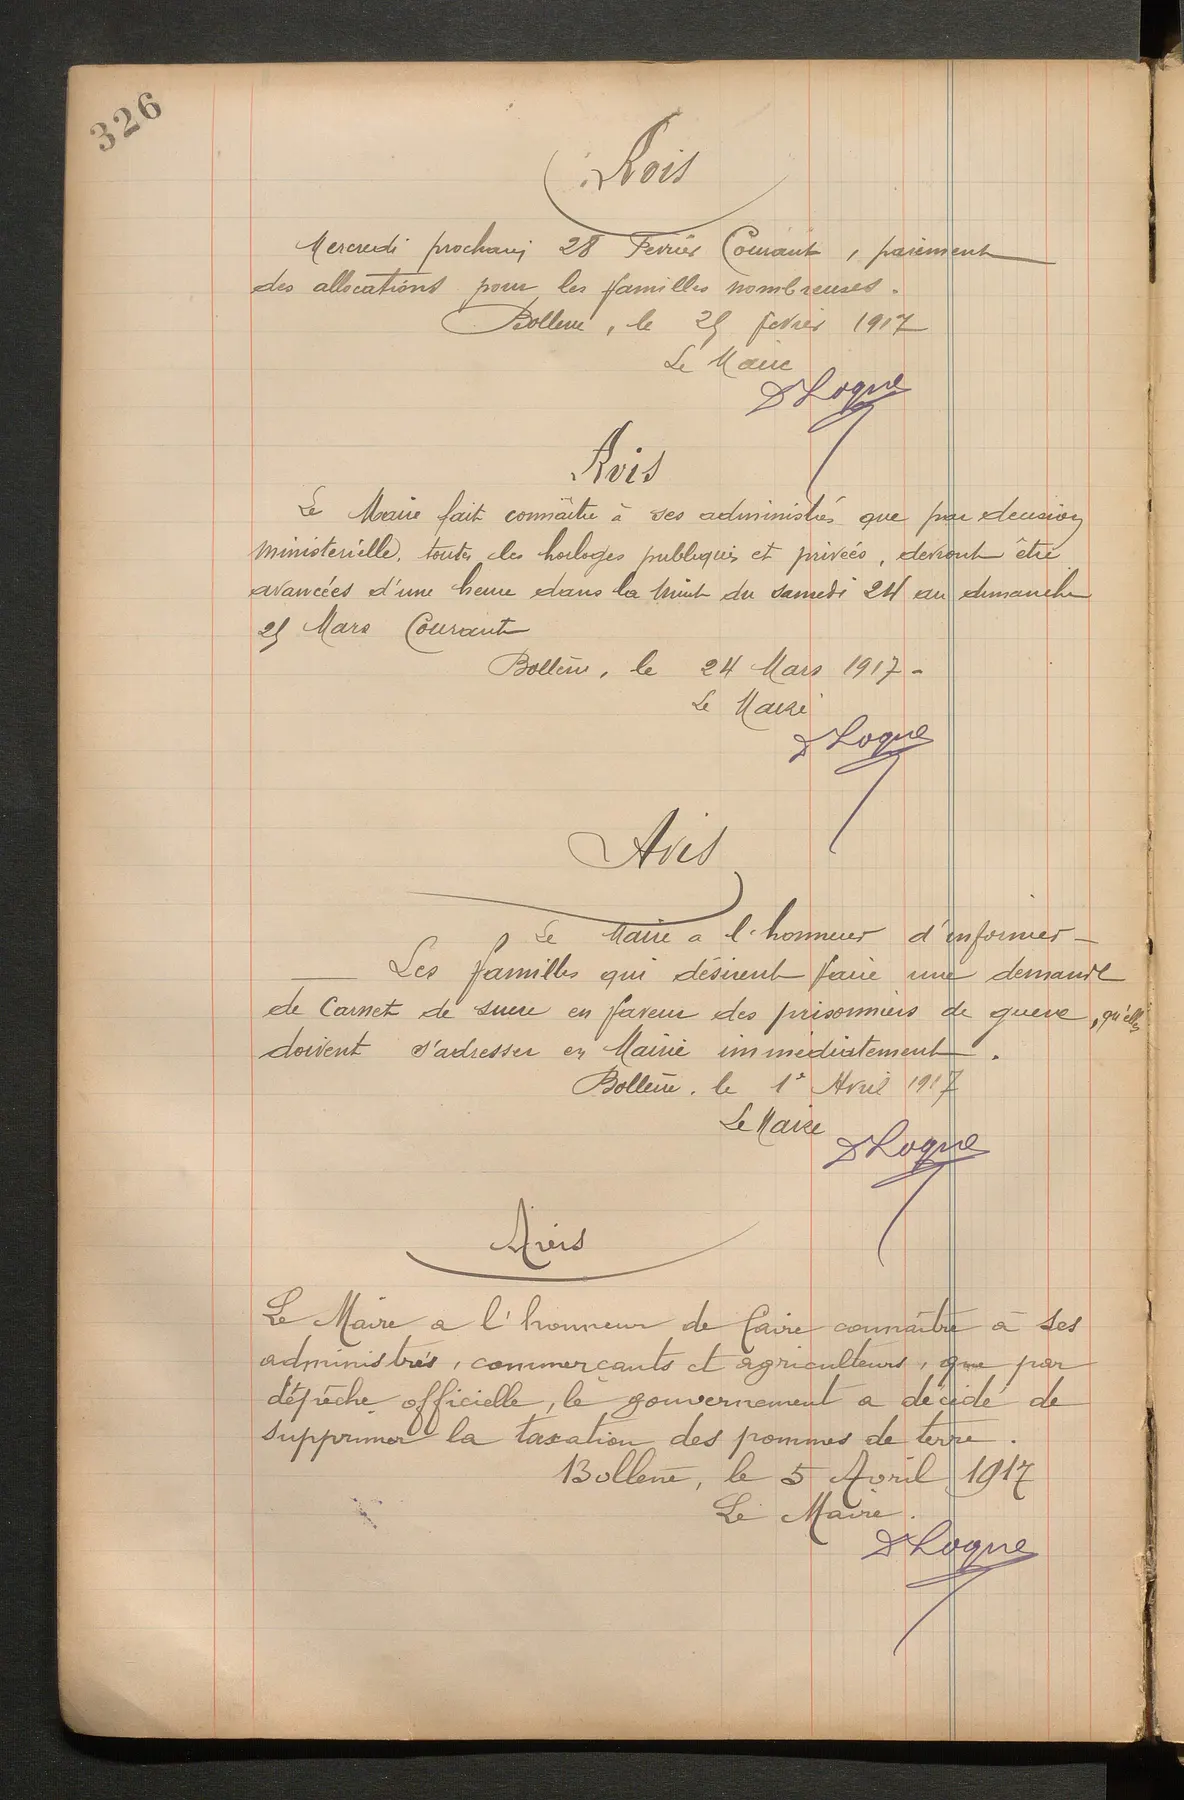 326
Avis
Mercredi prochain 28 Fevrier Courant, paiement
des allocations pour les familles nombreuses.
Bollène, le 25 fevrier 1917
Le Maire
D Loque
Avis
Le Maire fait connaître à ses administrés que par decision
ministerielle, toutes les horloges publiques et privées, devront être
avancées d'une heure dans la nuit du samedi 24 au dimanche
25 Mars Courant
Bollène, le 24 Mars 1917 -
Le Maire
D Loque
Avis
Le Maire a l'honneur d'informer -
Les familles qui désirent faire une demande
de Carnet de sucre en faveur des prisonniers de guerre, qu'elles
doivent s'adresser en Mairie immediatement.
Bollène, le 1er Avril 1917
Le Maire
D Loque
Avis
Le Maire a l'honneur de faire connaître à ses
administrés, commerçants et agriculteurs, que par
dépêche officielle, le gouvernement a décidé de
supprimer la taxation des pommes de terre.
Bollène, le 5 Avril 1917
Le Maire.
D Loque